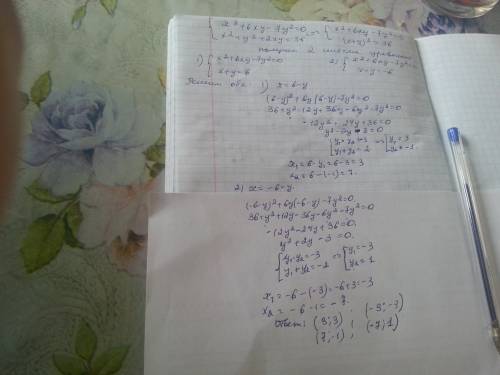 { x²+6xy-7y²=0 <=> { x²+6xy-7y²=0
{ x²+y²+2xy=36 { (x+y)²=36
получим 2 системы уравнений
1) { x²+6xy-7y²=0 2) { x²+6xy-7y²=0
{ x+y=6 { x+y=-6
Решим обе. 1) x=6-y
(6-y)²+6y(6-y)-7y²=0
36+y²-12y+36y-6y²-7y²=0
-12y²+24y+36=0
y²-2y-3=0
{ y₁·y₂=-3 => [ y₁=3
{ y₁+y₂=2 [ y₂=-1
x₁=6-y₁=6-3=3
x₂=6-(-1)=7.
2) x=-6-y.
(-6-y)²+6y(-6-y)-7y²=0
36+y²+12y-36y-6y²-7y²=0
-12y²-24y+36=0,
y²+2y-3=0.
{ y₁·y₂=-3 => [ y₁=-3
{ y₁+y₂=-2 [ y₂=1
x₁=-6-(-3)=-6+3=-3
x₂=-6-1=-7.
Ответ: (3;3); (-3;-3)
(7;-1); (-7;1)